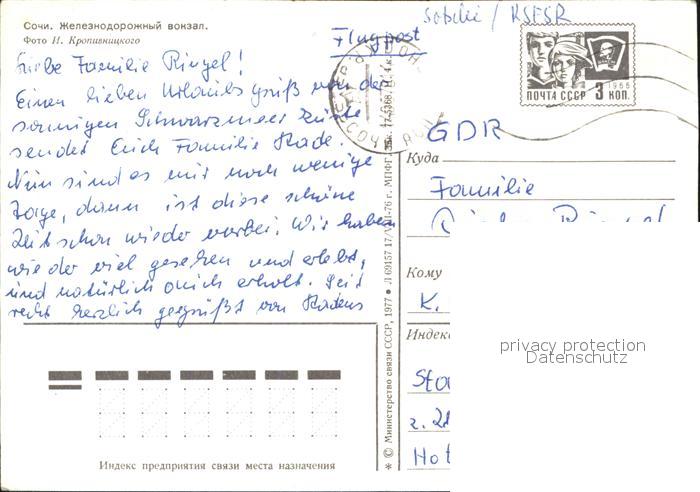 Сочи. Железнодорожный вокзал.
Фото И. Кропивницкого
Sotchi / RSFSR
Flugpost
ПОЧТА СССР 3 КОП.
1966
Liebe Familie Ringel!
Einen lieben Urlaubsgruß von der
sonnigen Schwarzmeerküste
sendet Euch Familie Rade.
Nun sind es nur noch wenige
Tage, dann ist diese schöne
Zeit schon wieder vorbei. Wir haben
wieder viel gesehen und erlebt,
und natürlich auch erholt. Seid
recht herzlich gegrüßt von Rades
GDR
Куда
Familie
Ringel
Кому
K.
Индекс
Hot
privacy protection
Datenschutz
* © Министерство связи СССР, 1977 ● Л 69157 17/VIII-76 г. МПФГ
Индекс предприятия связи места назначения